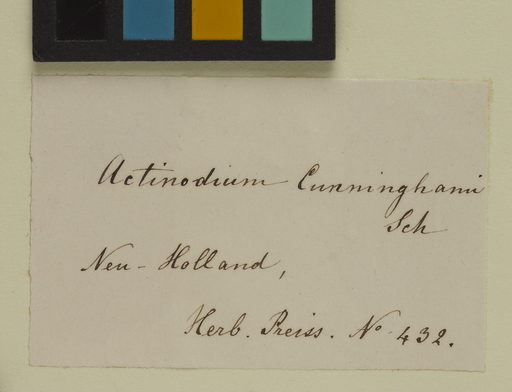 Actinodium Cunninghami
Sch
Neu-Holland,
Herb. Preiss. No. 432.